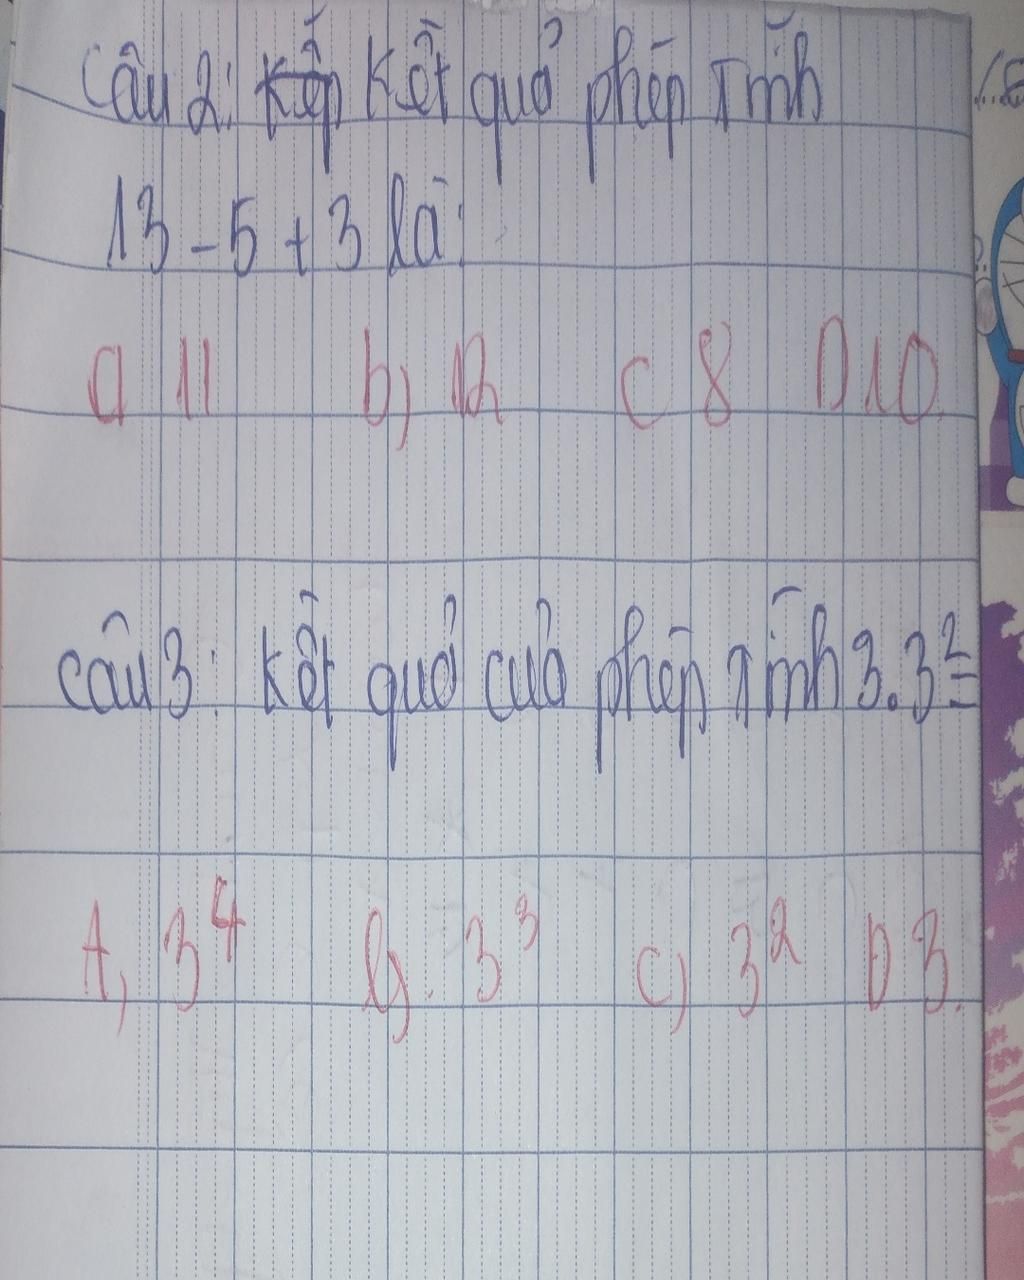 Câu 2: Kết quả phép tính
13 - 5 + 3 là:
a 11 b) 12 c 8 D 10
Câu 3: Kết quả của phép tính 3.3² =
A, 3⁴ b). 3³ c) 3² D 3.